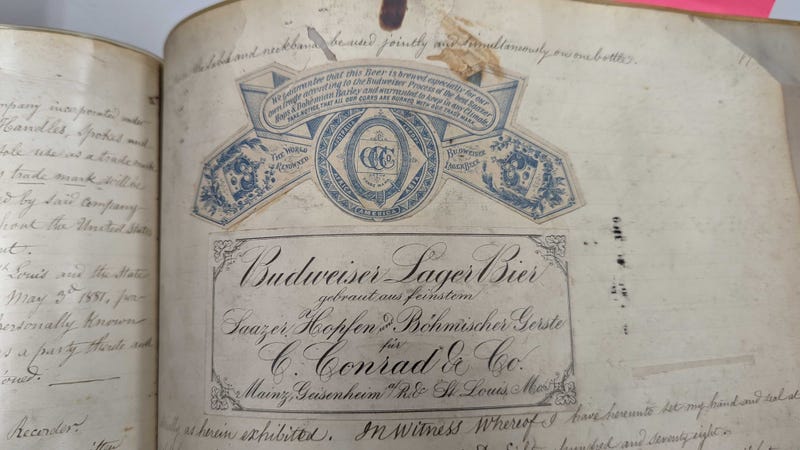 ompany incorporated under
Handles, Spokes and
sole use as a trade mark
trade mark will be
by said company
hout the United States
Louis and the State
May 3d 1881,
ersonally Known
a party thereto and
ioned.
Recorder.
the label and neckband be used jointly and simultaneously on one bottle.
We guarantee that this Beer is brewed especially for our
own trade according to the Budweiser Process of the best Saazer
Hops & Bohemian Barley and warranted to keep in any climate.
TAKE NOTICE THAT ALL OUR CORKS ARE BURNED WITH OUR TRADE MARK
THE WORLD
RENOWNED
EUROPE
ASIA
AFRICA
AMERICA
CCC
TRADE MARK
BUDWEISER
LAGER BEER
Budweiser Lager Bier
gebraut aus feinstem
Saazer Hopfen und Böhmischer Gerste
für
C. Conrad & Co.
Mainz, Geisenheim a/R. & St. Louis, Mo.
ally as herein exhibited. In Witness Whereof I have hereunto set my hand and seal at
hundred and seventy eight.